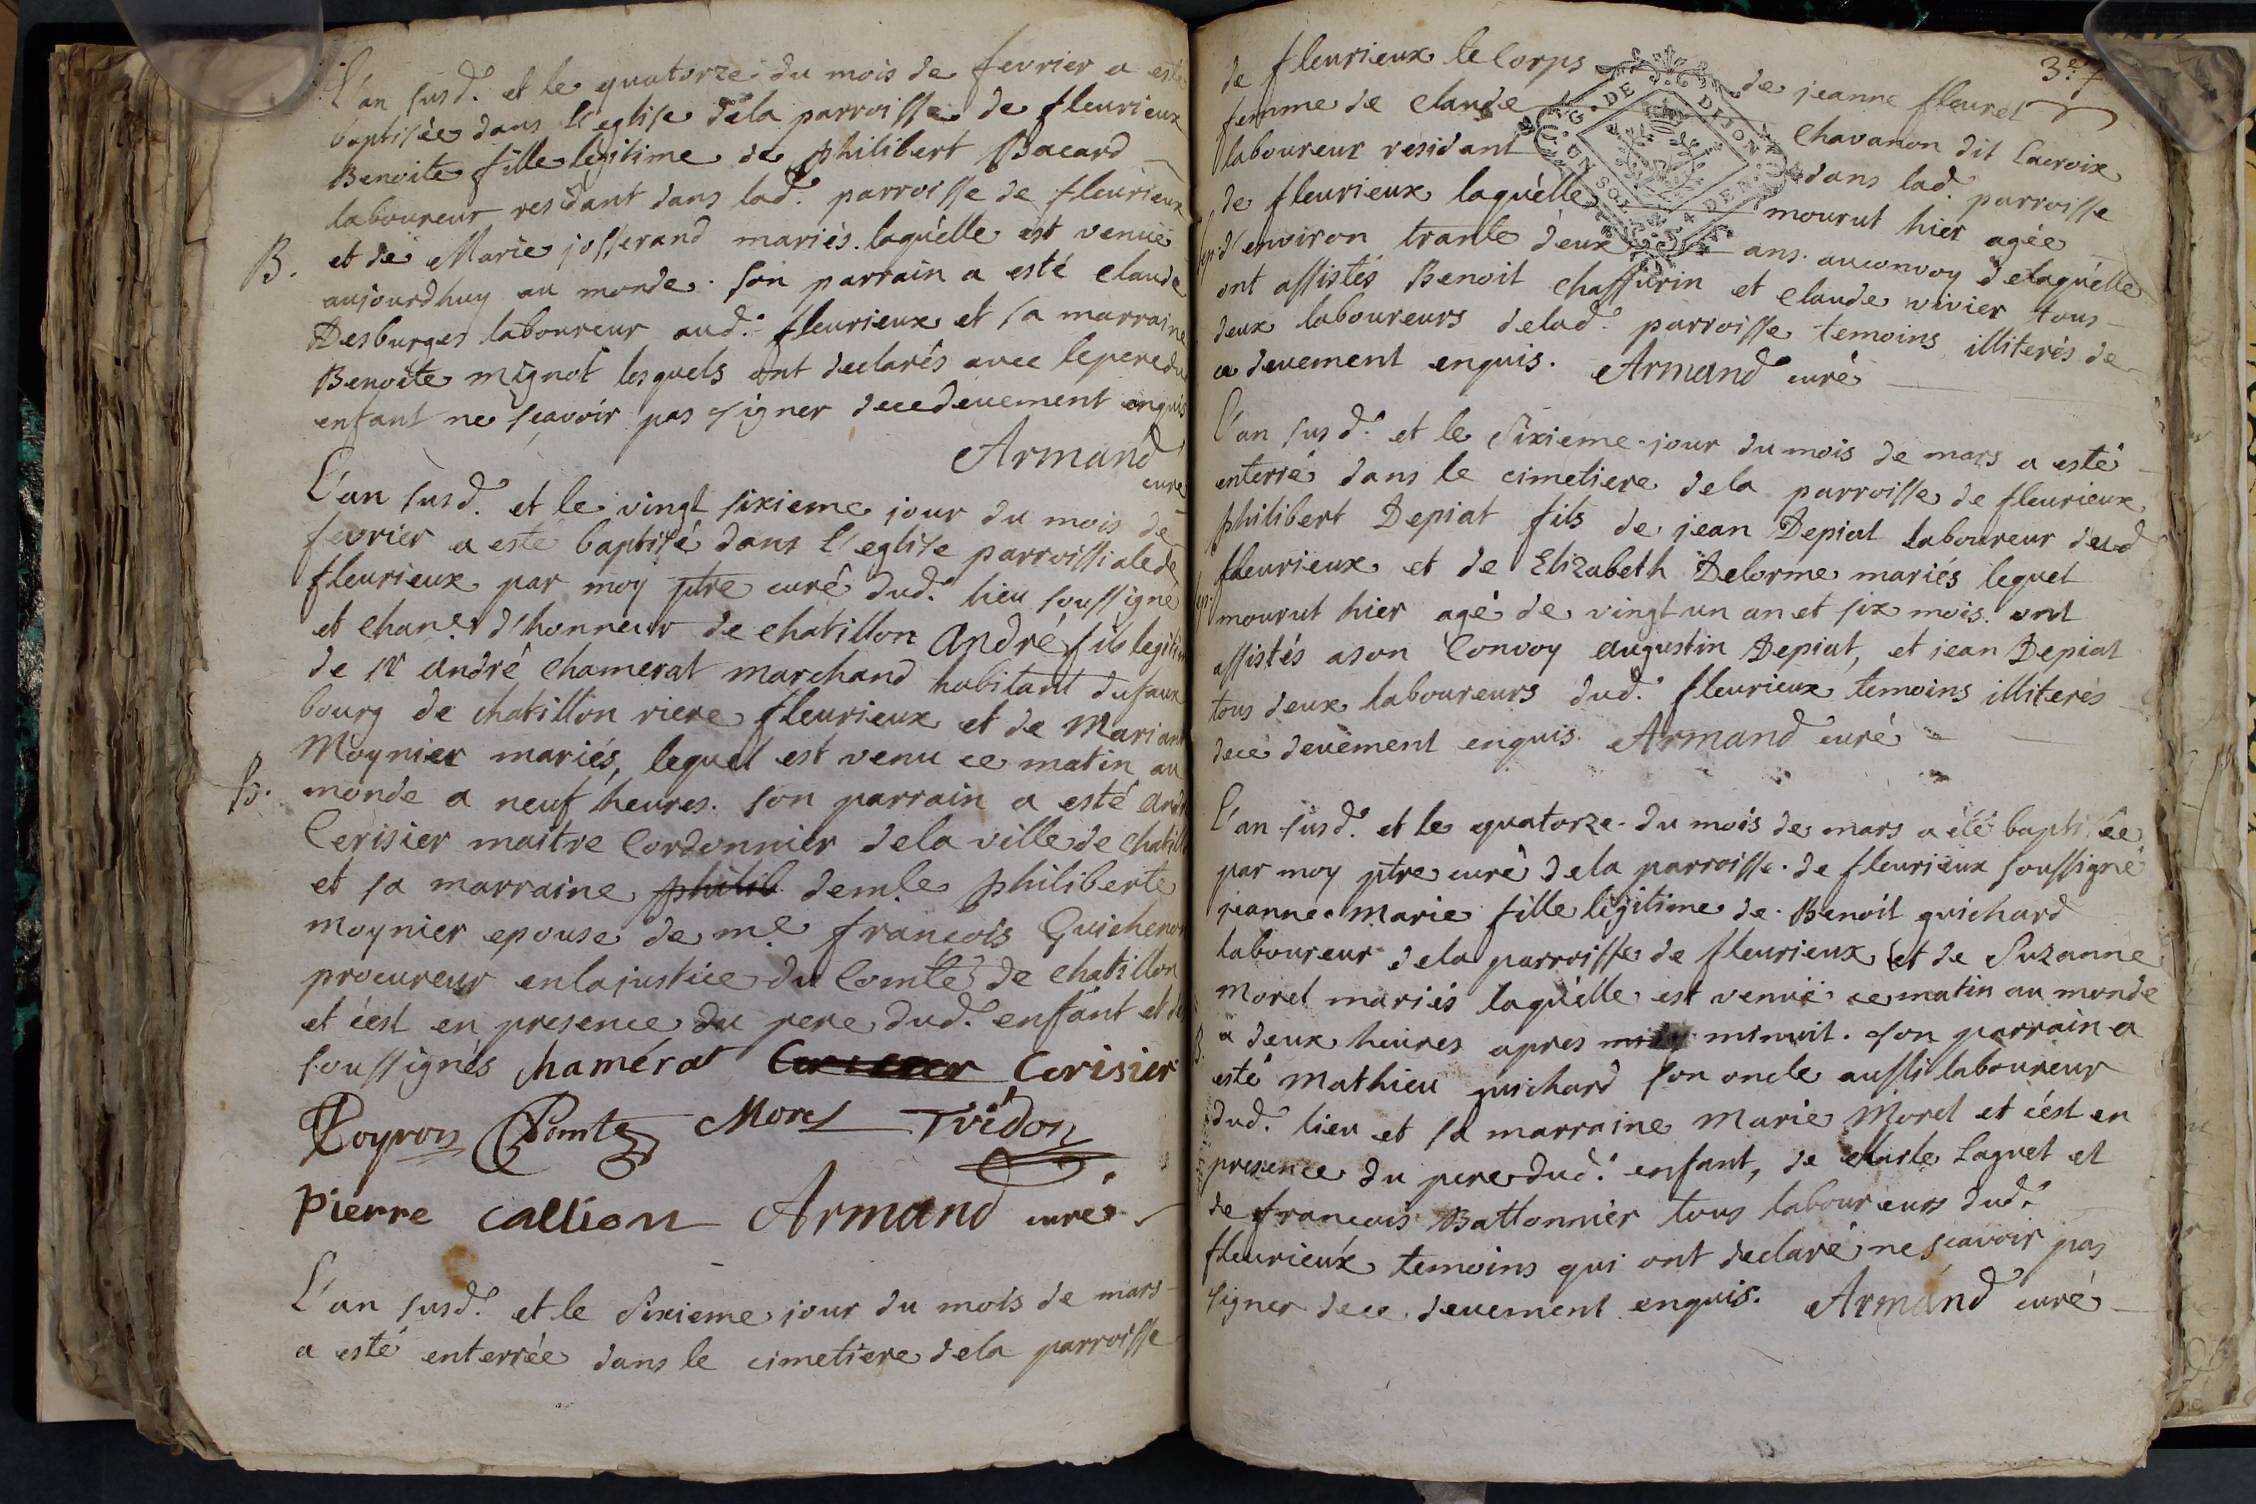 L'an susd. et le quatorze du mois de fevrier a esté
baptisée dans l'eglise dela parroisse de fleurieux
Benoite fille legitime de philibert Bacard
laboureur residant dans lad. parroisse de fleurieux
B. et de Marie josserand mariés. laquëlle est venuë
aujourdhuy au monde. son parrain a esté claude
Desburges laboureur aud. fleurieux et sa marraine
Benoite mignot lesquels ont declarés avec le pere du
enfant ne sçavoir pas signer dece deuement enquis
Armand
curé
L'an susd. et le vingt sixieme jour du mois de
fevrier a esté baptisé dans l'eglise parroissiale de
fleurieux par moy ptre curé dud. lieu soussigné
et chane. d'honneur de chatillon andré fils legitim
de sr andré chamerat marchand habitant du faux
bourg de chatillon riere fleurieux et de Mariann
Moynier mariés, lequel est venu ce matin au
B. monde a neuf heures. son parrain a esté andr
Cerisier maitre Cordonnier dela ville de chatill
et sa marraine philib demle philiberte
moynier epouse de me françois Guichenon
procureur en la justice du Comté de chatillon
et c'est en presence du pere dud. enfant et de
soussignés chamérat Cerisier
Poyron Comte Morel Tridon
pierre callion Armand curé
L'an susd. et le sixieme jour du mois de mars
a esté enterrée dans le cimetiere dela parroisse
3e 7
de fleurieux le corps de jeanne fleuret
femme de claude Chavanon dit Lacroix
laboureur residant dans lad. parroisse
de fleurieux laquëlle mourut hier agée
sep. d'environ trante deux ans. au convoy delaquëlle
ont assistés Benoit chassurin et claude vivier tous
deux laboureurs delad. parroisse temoins illiterés de
ce deuement enquis. Armand curé
G. DE DIJON
UN SOL 4 DEN.
L'an susd. et le sixieme jour du mois de mars a esté
enterré dans le cimetiere dela parroisse de fleurieux
philibert Depiat fils de jean Depiat laboureur dud
fleurieux et de Elizabeth Delorme mariés lequel
sep. mourut hier agé de vingt un an et six mois. ont
assistés a son Convoy augustin Depiat, et jean Depiat
tous deux laboureurs dud. fleurieux temoins illiterés
dece deuëment enquis. Armand curé
L'an susd. et le quatorze du mois de mars a été baptisée
par moy ptre curé dela parroisse de fleurieux soussigné
jeanne marie fille legitime de Benoit guichard
laboureur dela parroisse de fleurieux et de Suzanne
Morel mariés laquëlle est venuë ce matin au monde
B. a deux heures apres minuit. son parrain a
esté Mathieu guichard son oncle aussi laboureur
dud. lieu et sa marraine Marie Morel et c'est en
presence du pere dud. enfant, de Laguet et
de françois Battonnier tous laboureurs dud.
fleurieux temoins qui ont declaré ne sçavoir pas
signer dece deuement enquis. Armand curé